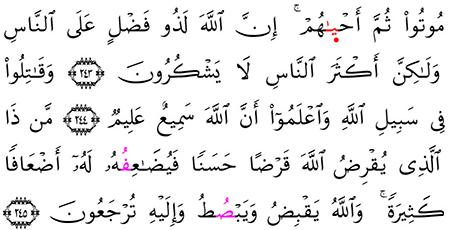 مُوتُوا۟ ثُمَّ أَحْيَـٰهُمْ ۚ إِنَّ ٱللَّهَ لَذُو فَضْلٍ عَلَى ٱلنَّاسِ
وَلَـٰكِنَّ أَكْثَرَ ٱلنَّاسِ لَا يَشْكُرُونَ ﴿٢٤٣﴾ وَقَـٰتِلُوا۟
فِى سَبِيلِ ٱللَّهِ وَٱعْلَمُوٓا۟ أَنَّ ٱللَّهَ سَمِيعٌ عَلِيمٌ ﴿٢٤٤﴾ مَّن ذَا
ٱلَّذِى يُقْرِضُ ٱللَّهَ قَرْضًا حَسَنًا فَيُضَـٰعِفُهُۥ لَهُۥٓ أَضْعَافًا
كَثِيرَةً ۚ وَٱللَّهُ يَقْبِضُ وَيَبْصُطُ وَإِلَيْهِ تُرْجَعُونَ ﴿٢٤٥﴾